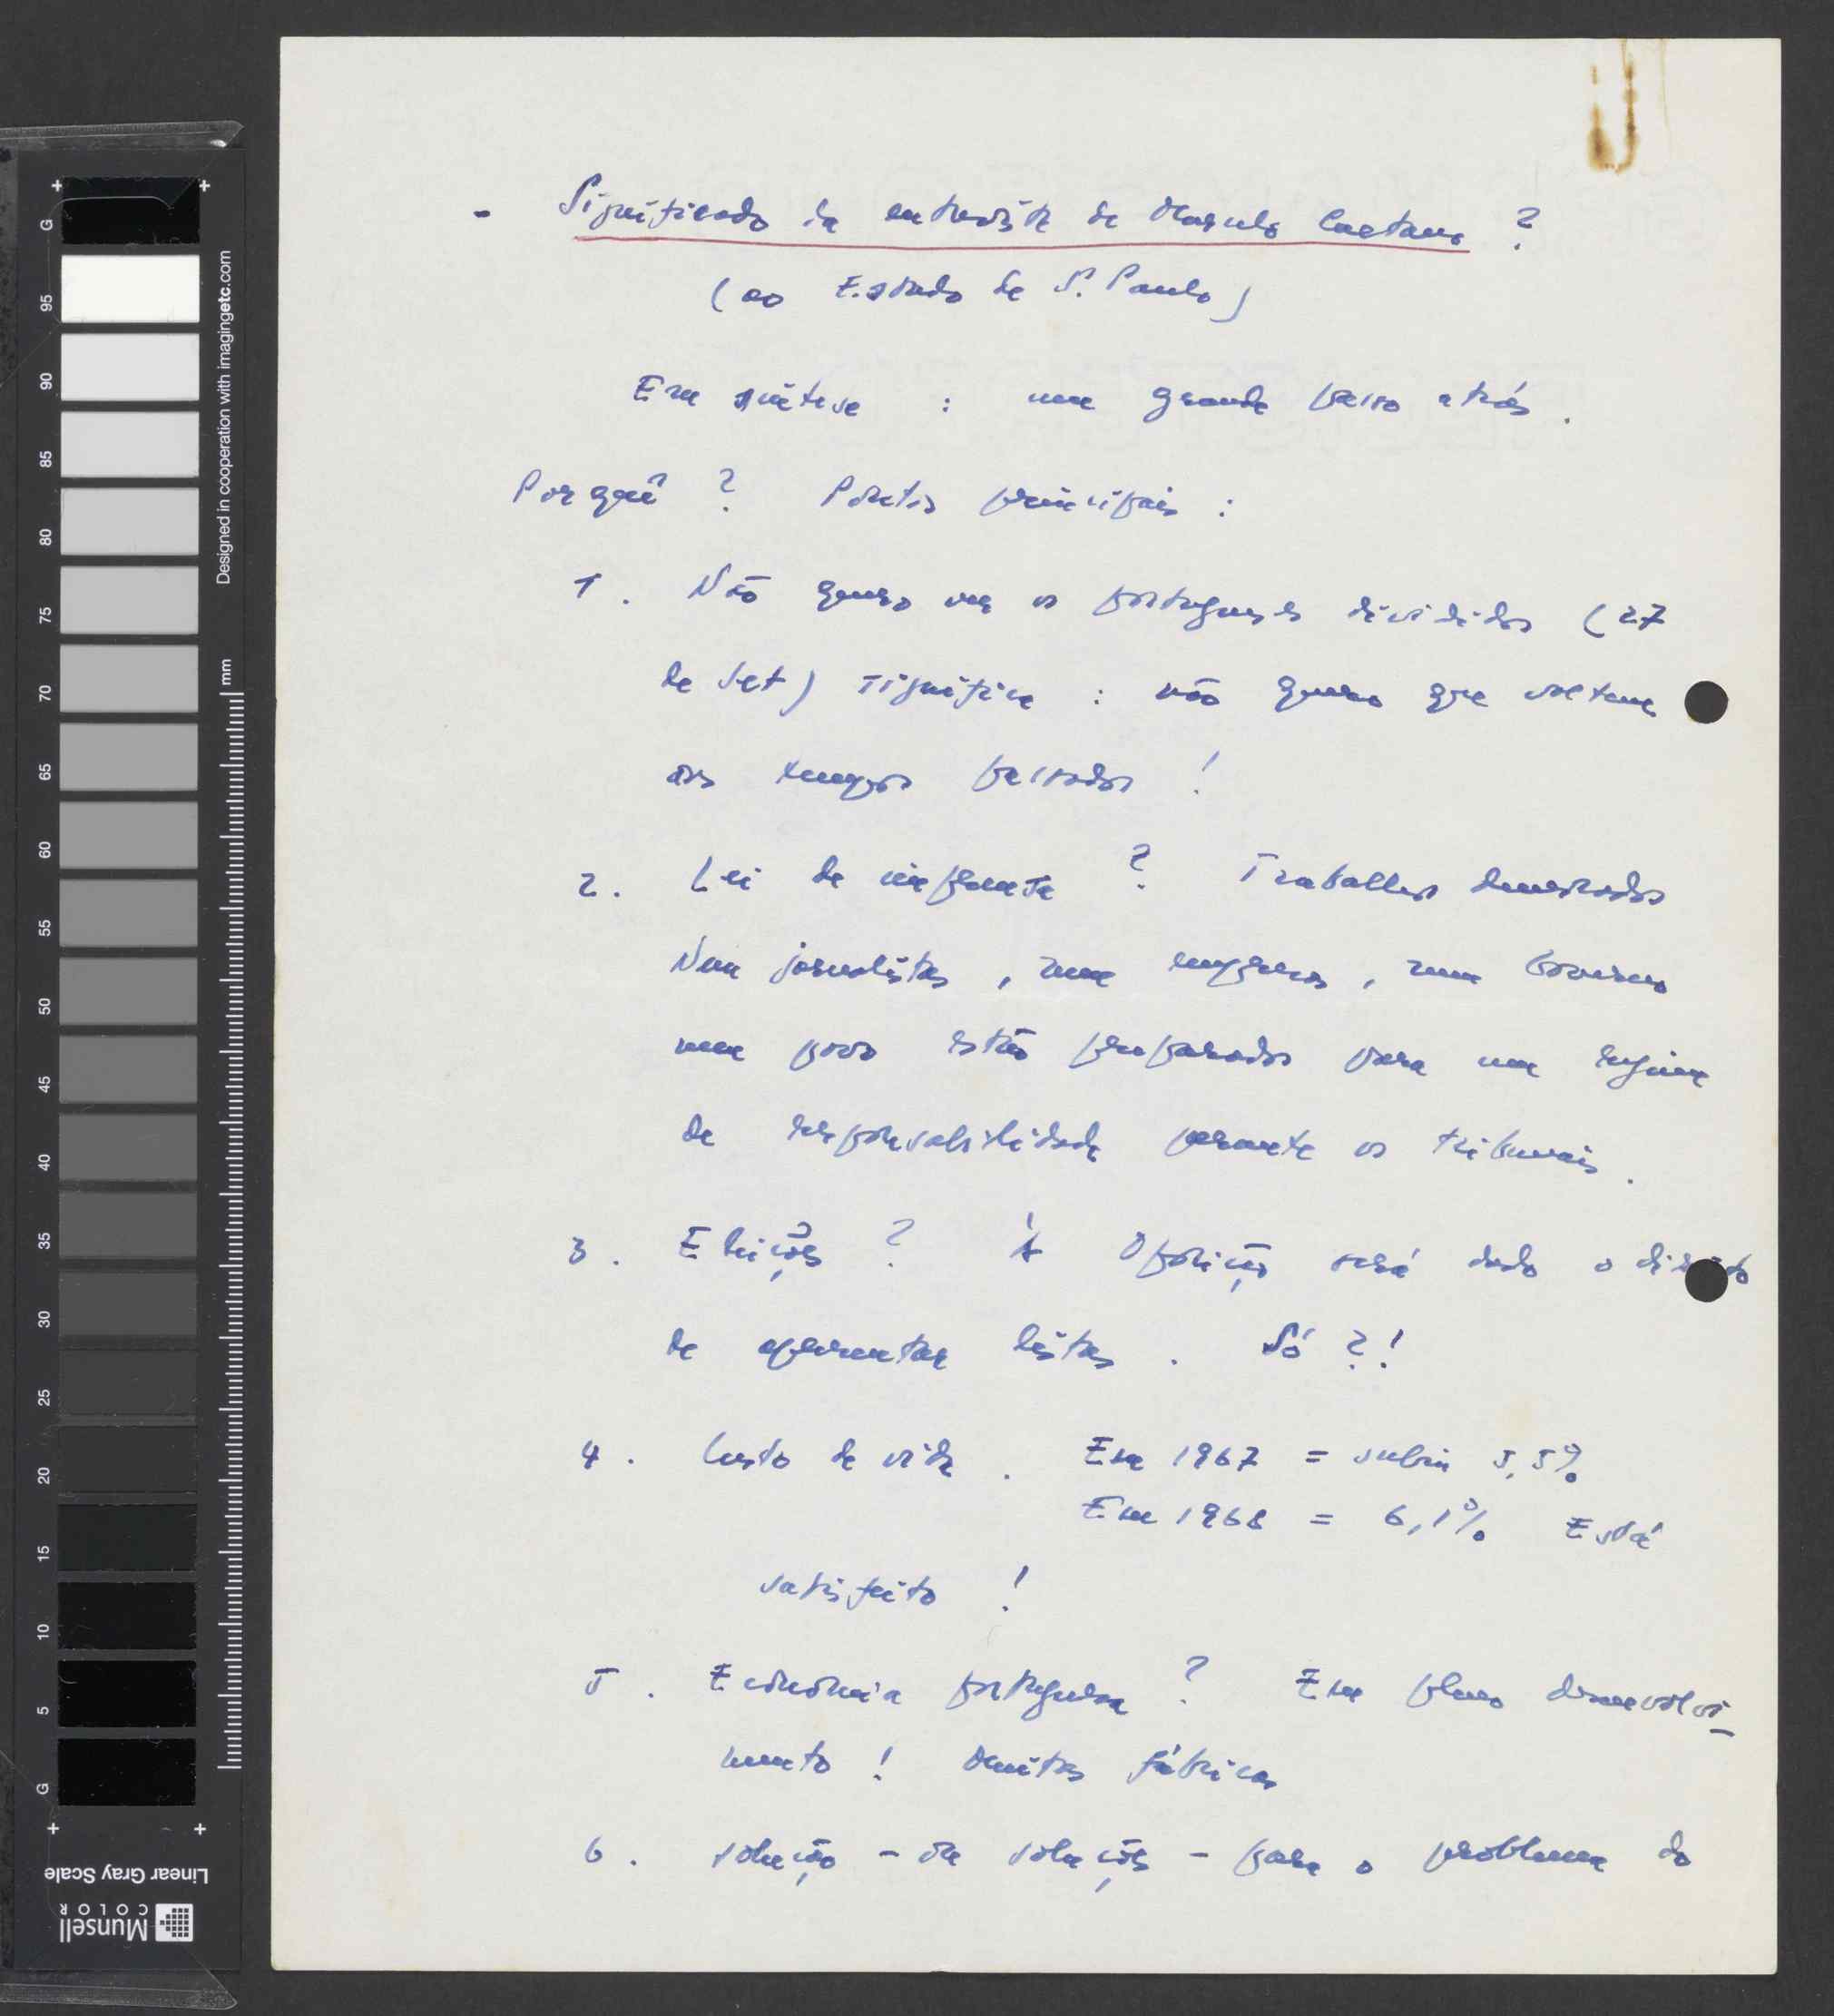 - Significado da entrevista de Marcelo Caetano ?
(ao Estado de S. Paulo)
Em síntese : um grande passo atrás .
Porquê ? Pontos principais :
1 . Não quero ver os portugueses divididos (27
de Set) significa : não quero que voltem
aos tempos passados !
2 . Lei de imprensa ? Trabalhos demorados
Nem jornalistas , nem empresas , nem Governo
nem povo estão preparados para um regime
de responsabilidade perante os tribunais .
3 . Eleições ? À Oposição será dado o direito
de apresentar listas . Só ?!
4 . Custo de vida . Em 1967 = subiu 5,5%
Em 1968 = 6,1% Está
satisfeito !
5 . Economia portuguesa ? Em pleno desenvolvi-
mento ! Muitas fábricas
6 . solução - ou soluções - para o problema do
G 95 90 85 80 75 70 65 60 55 50 45 40 35 30 25 20 15 10 5 G
mm
Designed in cooperation with imagingetc.com
Linear Gray Scale
Munsell
COLOR